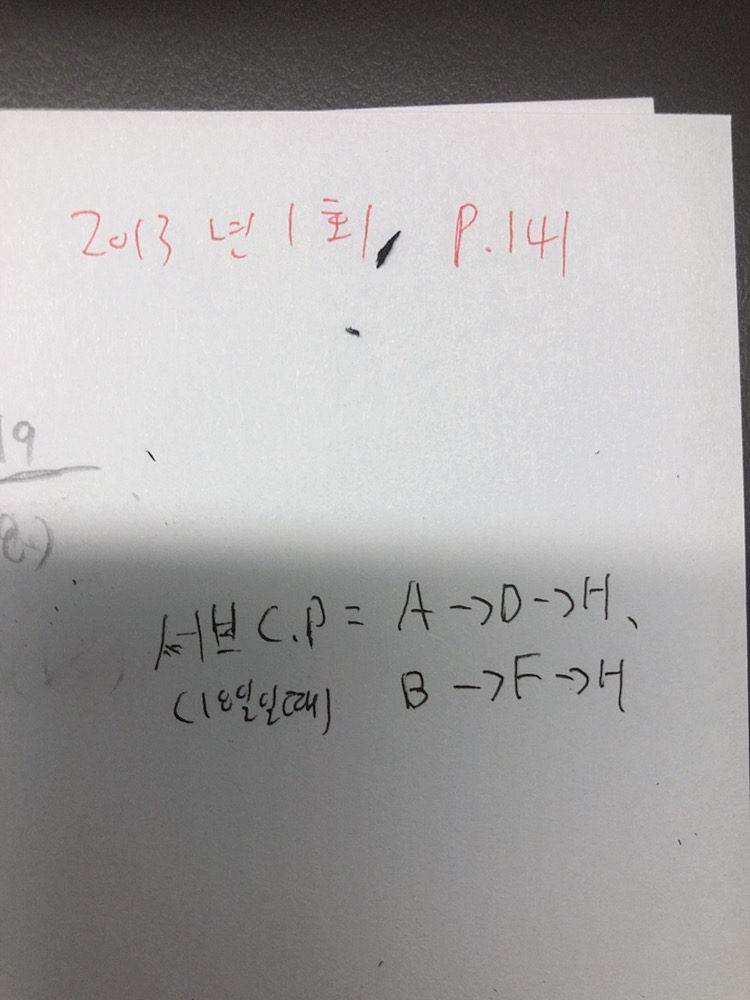 2013년 1회, P.141
19
서브 C.P = A → D → H,
(18일일때) B → F → H